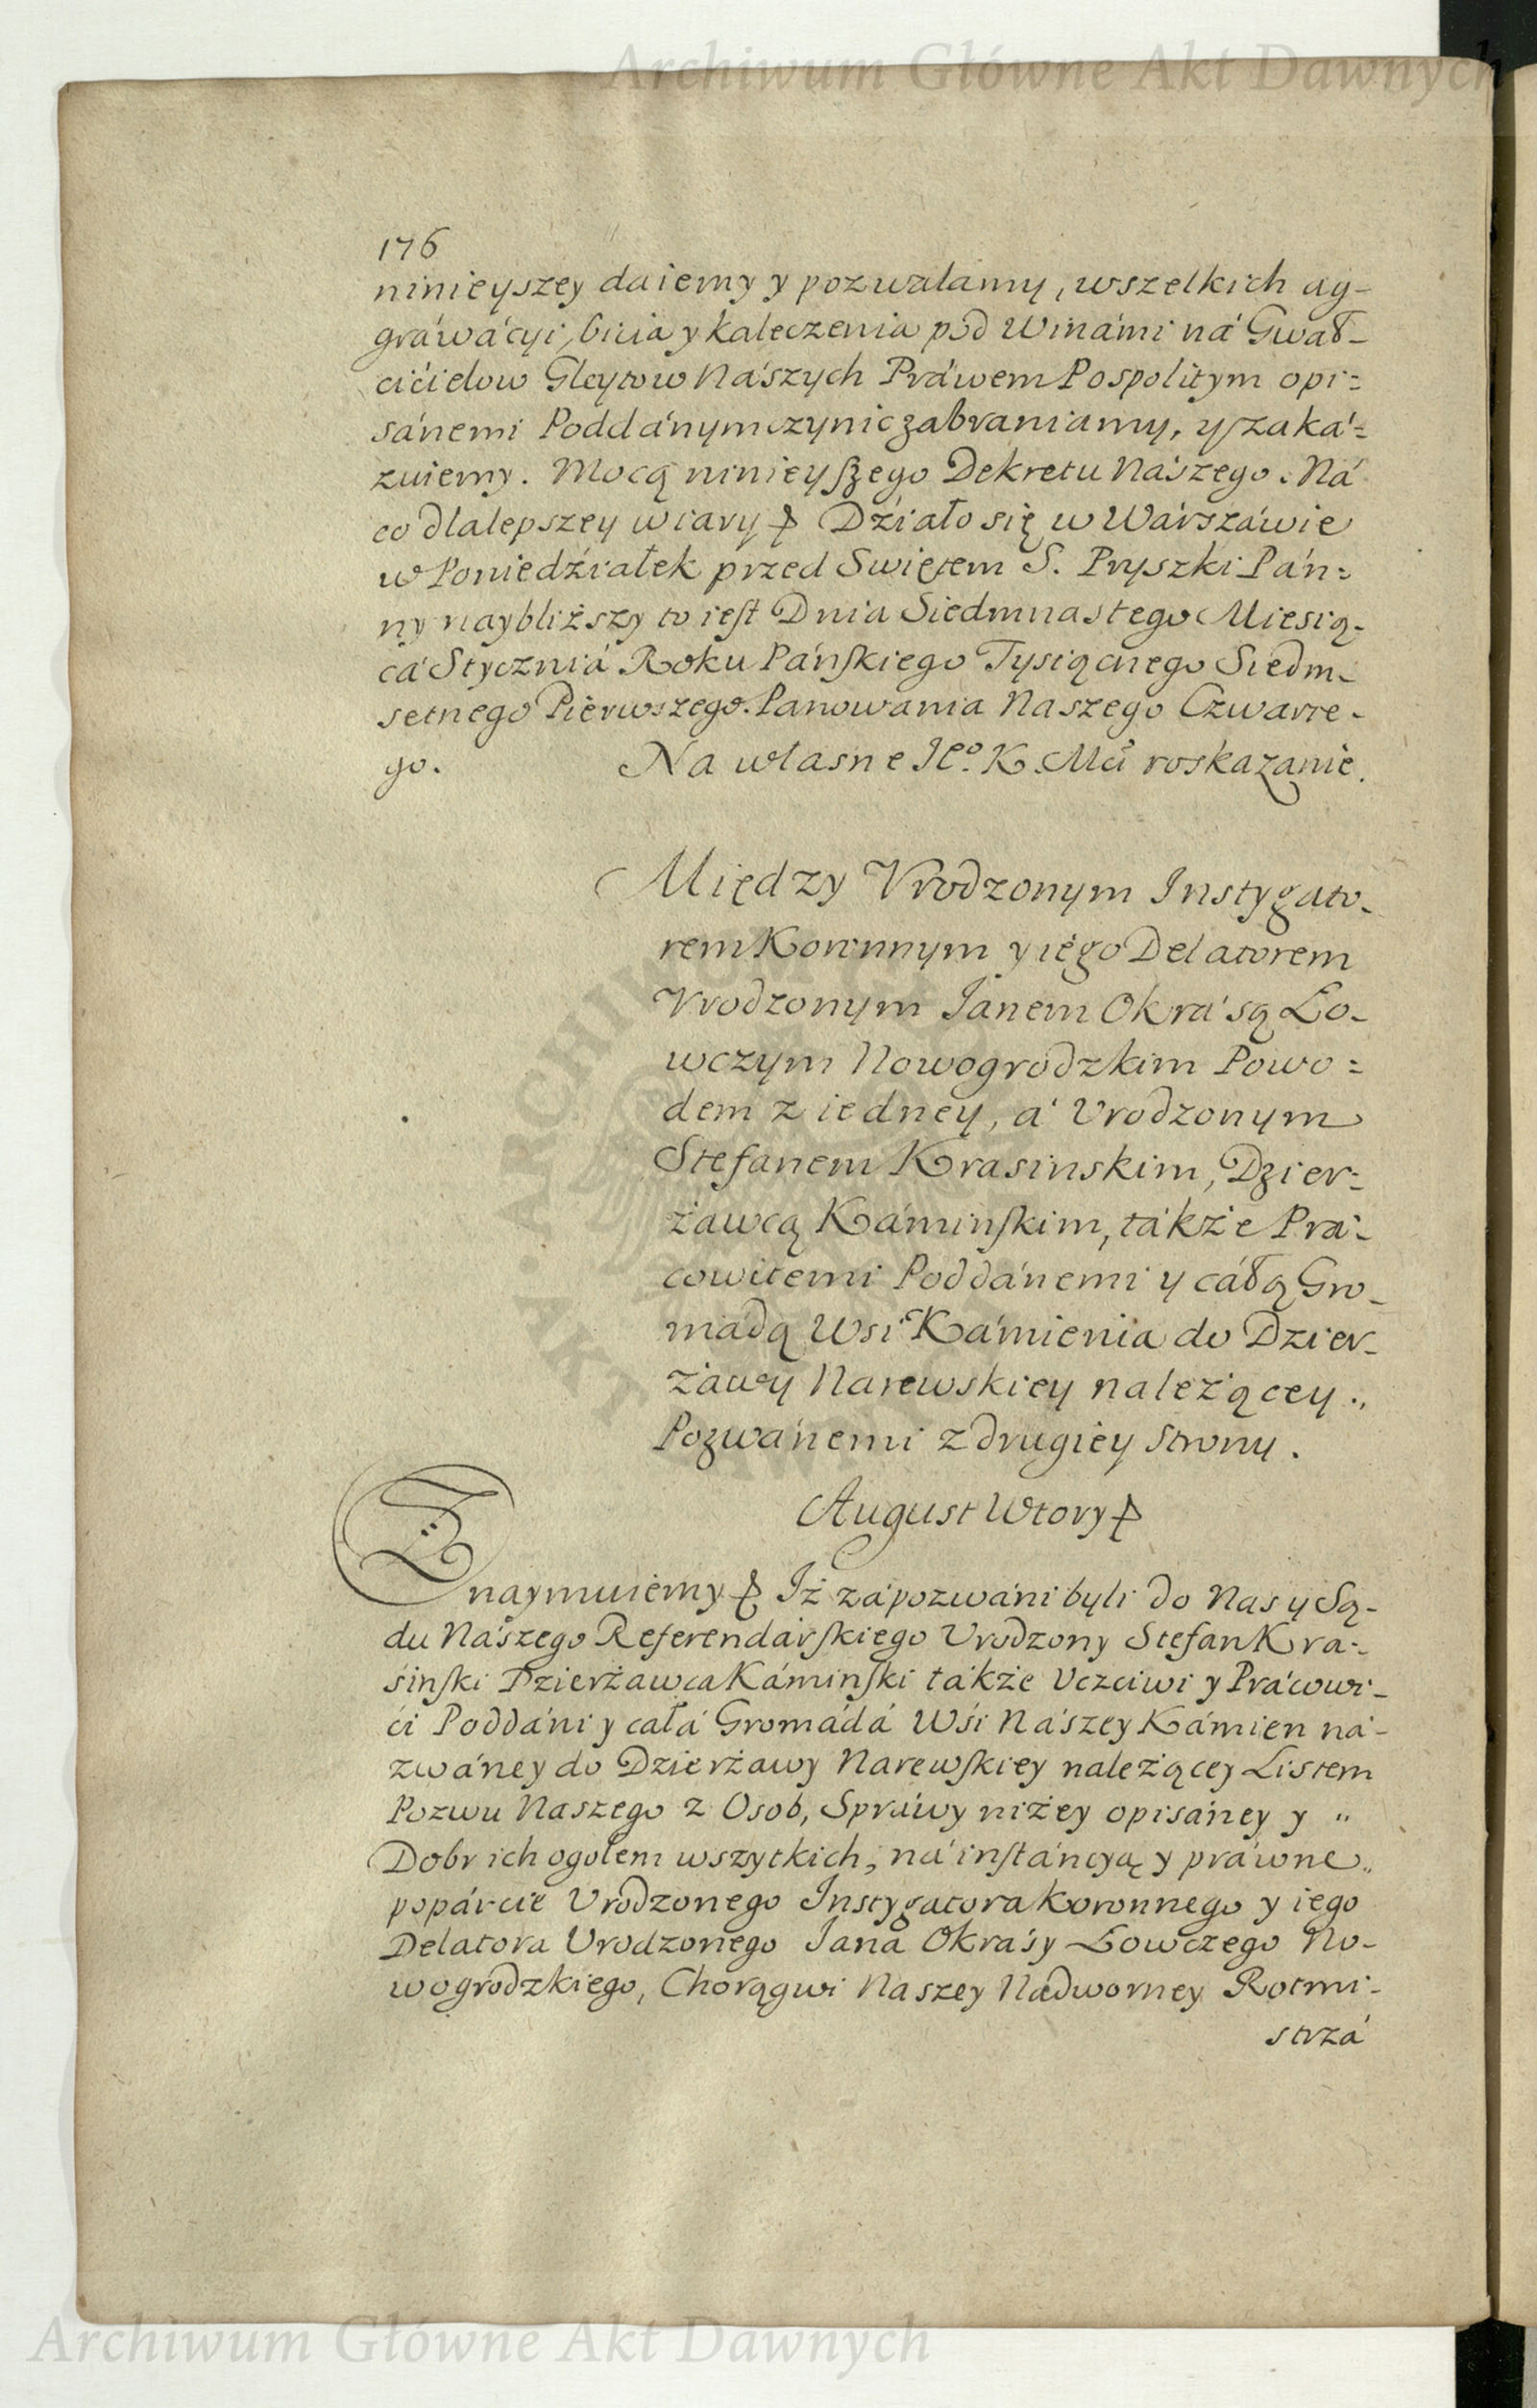 Archiwum Główne Akt Dawnych
176
ninieyszey daiemy y pozwalamy, wszelkich ag-
gráwácyi, bicia y kaleczenia pod Winámi ná Gwał-
cićielow Gleytow Nászych Práwem Pospolitym opi=
sánemi Poddánym czynic zabraniamy, y zaká=
zuiemy. Mocą ninieyſzego Dekretu Nászego. Ná
co dla lepszey wiary ꝑ Dźiało się w Wárszáwie
w Poniedźiałek przed Swiętem S. Pryszki Pán=
ny naybliższy to ieſt Dnia Siedmnastego Miesią-
cá Styczniá Roku Páńſkiego Tysiącnego Siedm-
setnego Pierwszego. Panowania Naszego Czwarte-
go. Na własne Jeº. K. Mci roskazanie.
Między Vrodzonym Instygato-
rem Koronnym y iego Delatorem
Vrodzonym Janem Okrásą Ło-
wczym Nowogrodzkim Powo=
dem z iedney, á Vrodzonym
Stefanem Krasinskim, Dzier=
żawcą Kámińſkim, tákże Prá-
cowitemi Poddánemi y cáłą Gro-
mádą Wsi Kámienia do Dzier-
żawy Narewskiey należącey.,
Pozwánemi z drugiey strony.
August Wtory ꝑ
Znaymuiemy ꝑ Iż zápozwáni byli do Nas y Są-
du Nászego Referendárſkiego Vrodzony Stefan Kra-
śinſki Dzierżawca Káminſki tákże Vczciwi y Prácowi-
ći Poddáni y całá Gromádá Wśi Nászey Kámien ná-
zwáney do Dzierżawy Narewſkiey należącey Listem
Pozwu Naszego z Osob, Spráwy niżey opisáney y "
Dobr ich ogołem wszytkich, ná inſtáncyą y práwne"
popárcie Vrodzonego Instygatora Koronnego y iego
Delatora Vrodzonego Janá Okrásy Łowczego No-
wogrodzkiego, Chorągwi Naszey Nadworney Rotmi-
strzá
ARCHIWUM
AKT
Archiwum Główne Akt Dawnych